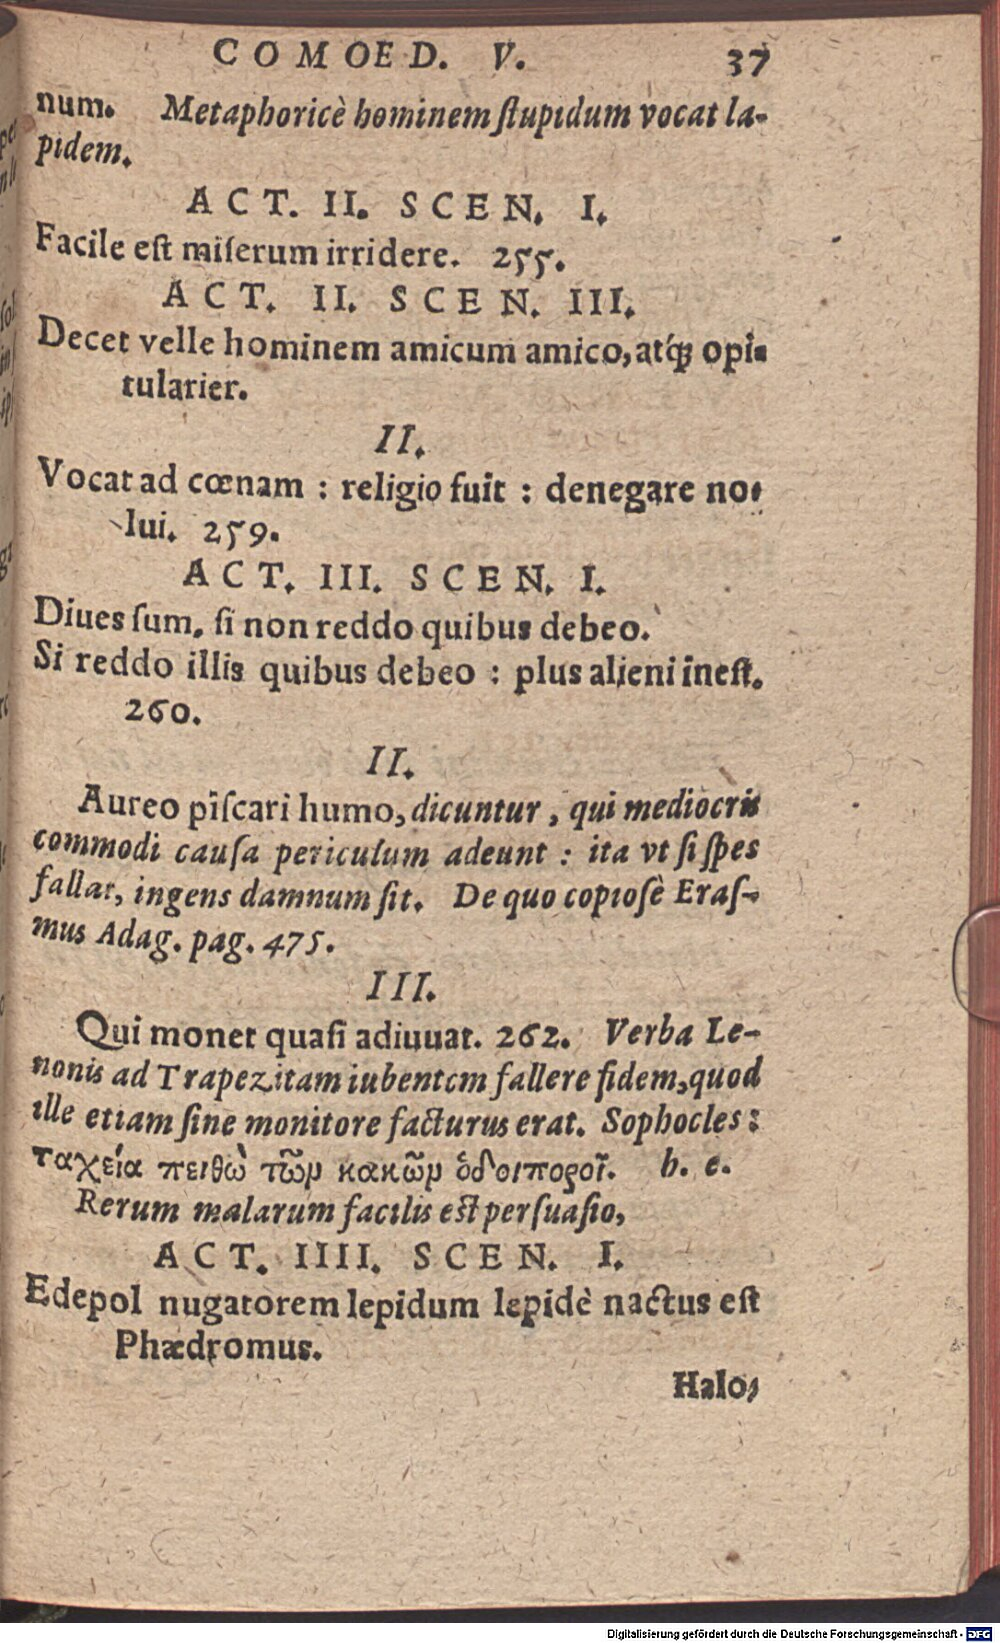 COMOED. V. 37
num. Metaphoricè hominem ſtupidum vocat la-
pidem.
ACT. II. SCEN. I.
Facile eſt miſerum irridere. 255.
ACT. II. SCEN. III.
Decet velle hominem amicum amico, atq́ꝫ opi-
tularier.
II.
Vocat ad cœnam : religio fuit : denegare no-
lui. 259.
ACT. III. SCEN. I.
Diues ſum, ſi non reddo quibus debeo.
Si reddo illis quibus debeo : plus alieni ineſt.
260.
II.
Aureo piſcari humo, dicuntur, qui mediocris
commodi cauſa periculum adeunt : ita vt ſi ſpes
fallat, ingens damnum ſit. De quo copioſè Eraſ-
mus Adag. pag. 475.
III.
Qui monet quaſi adiuuat. 262. Verba Le-
nonis ad Trapezitam iubentem fallere fidem, quod
ille etiam ſine monitore facturus erat. Sophocles:
ταχεία πειθὼ τῶν κακῶν ὁδοιποροῖ. h. e.
Rerum malarum facilis eſt perſuaſio,
ACT. IIII. SCEN. I.
Edepol nugatorem lepidum lepidè nactus eſt
Phædromus.
Halo,
Digitalisierung gefördert durch die Deutsche Forschungsgemeinschaft - DFG